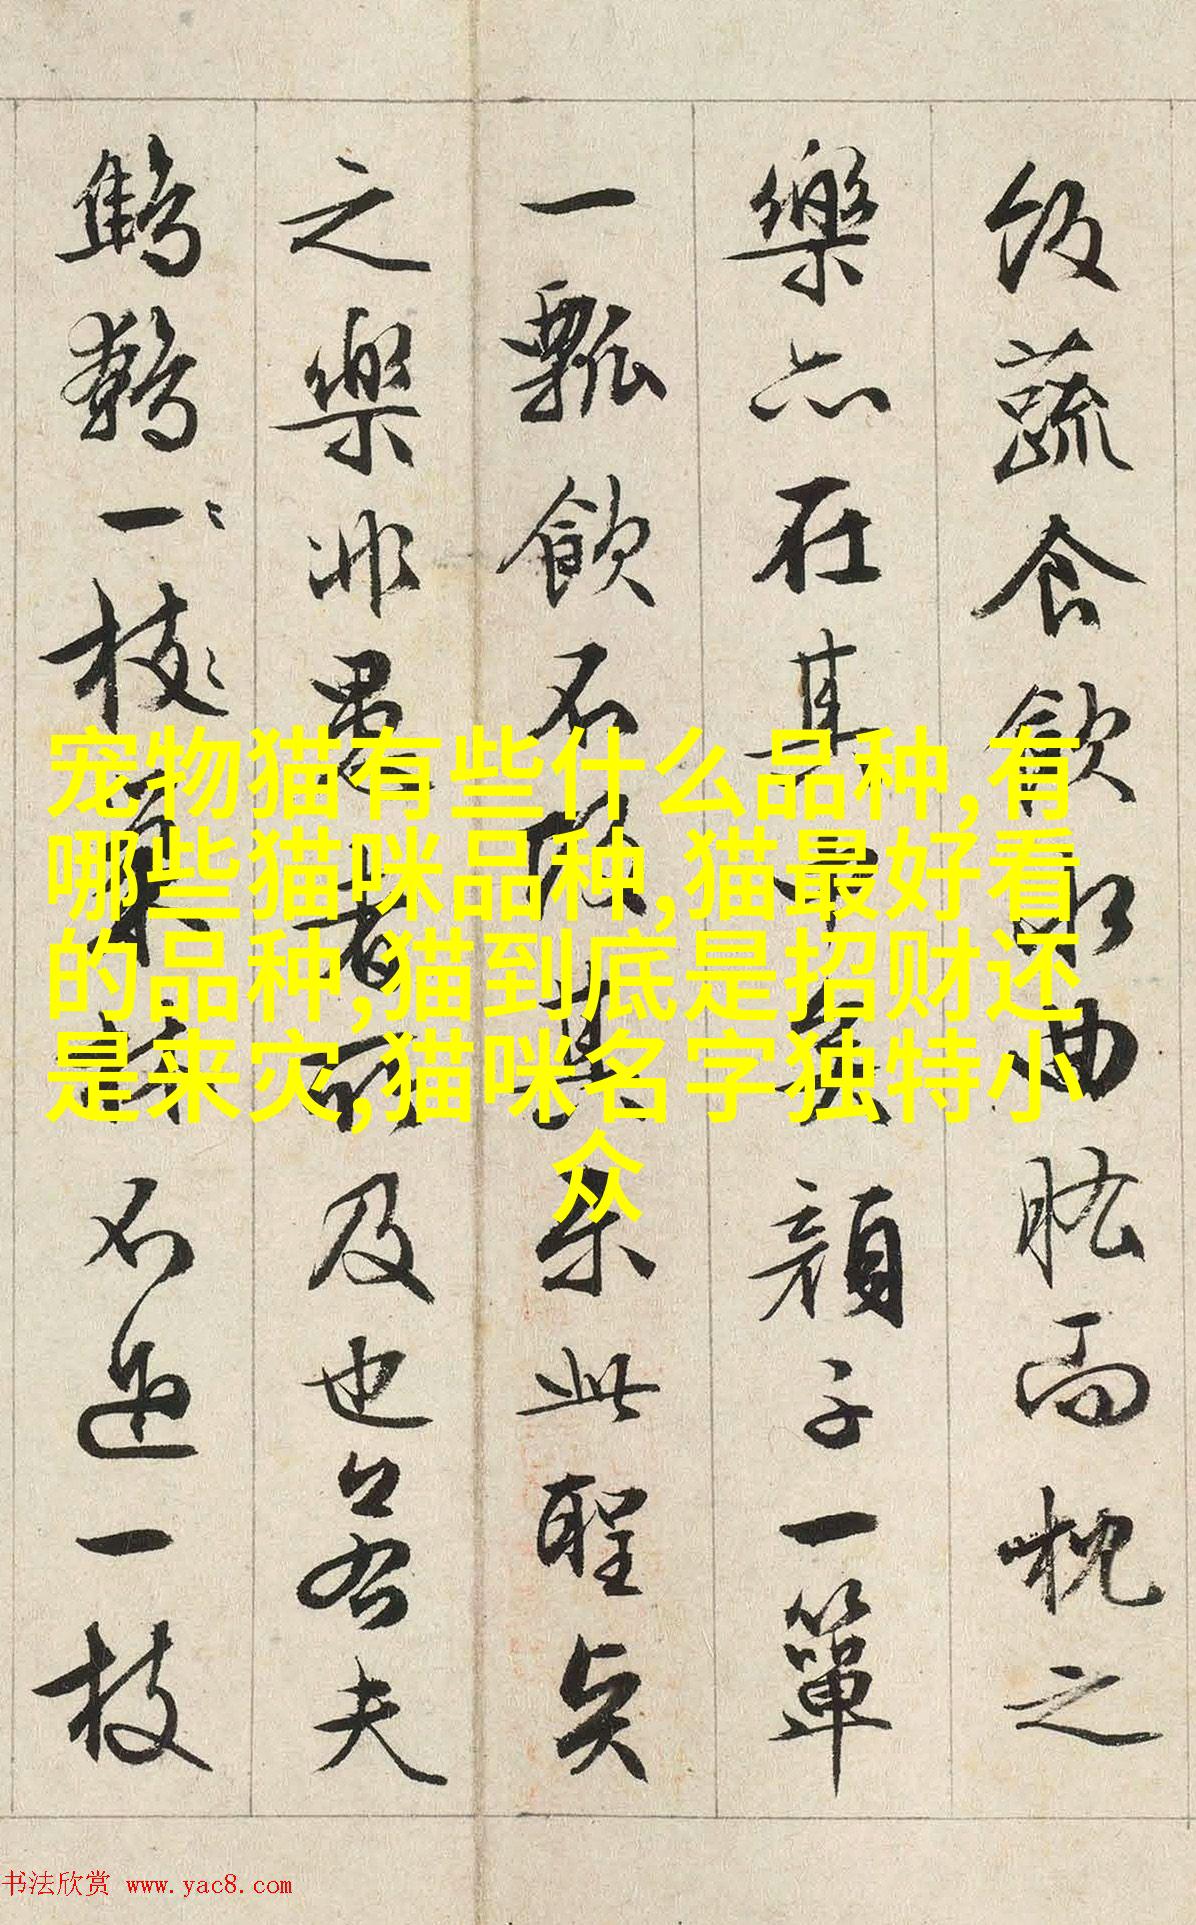 飯蔬食飲水曲肱而枕之
樂亦在其中矣顏子一簞
一瓢飲不改其樂此聖賢
之樂非愚者所及也若夫
鷦鷯一枝巢林不過一枝
宠物猫有些什么品种,有
哪些猫咪品种,猫最好看
的品种,猫到底是招财还
是来灾,猫咪名字独特小
众
书法欣赏 www.yac8.com